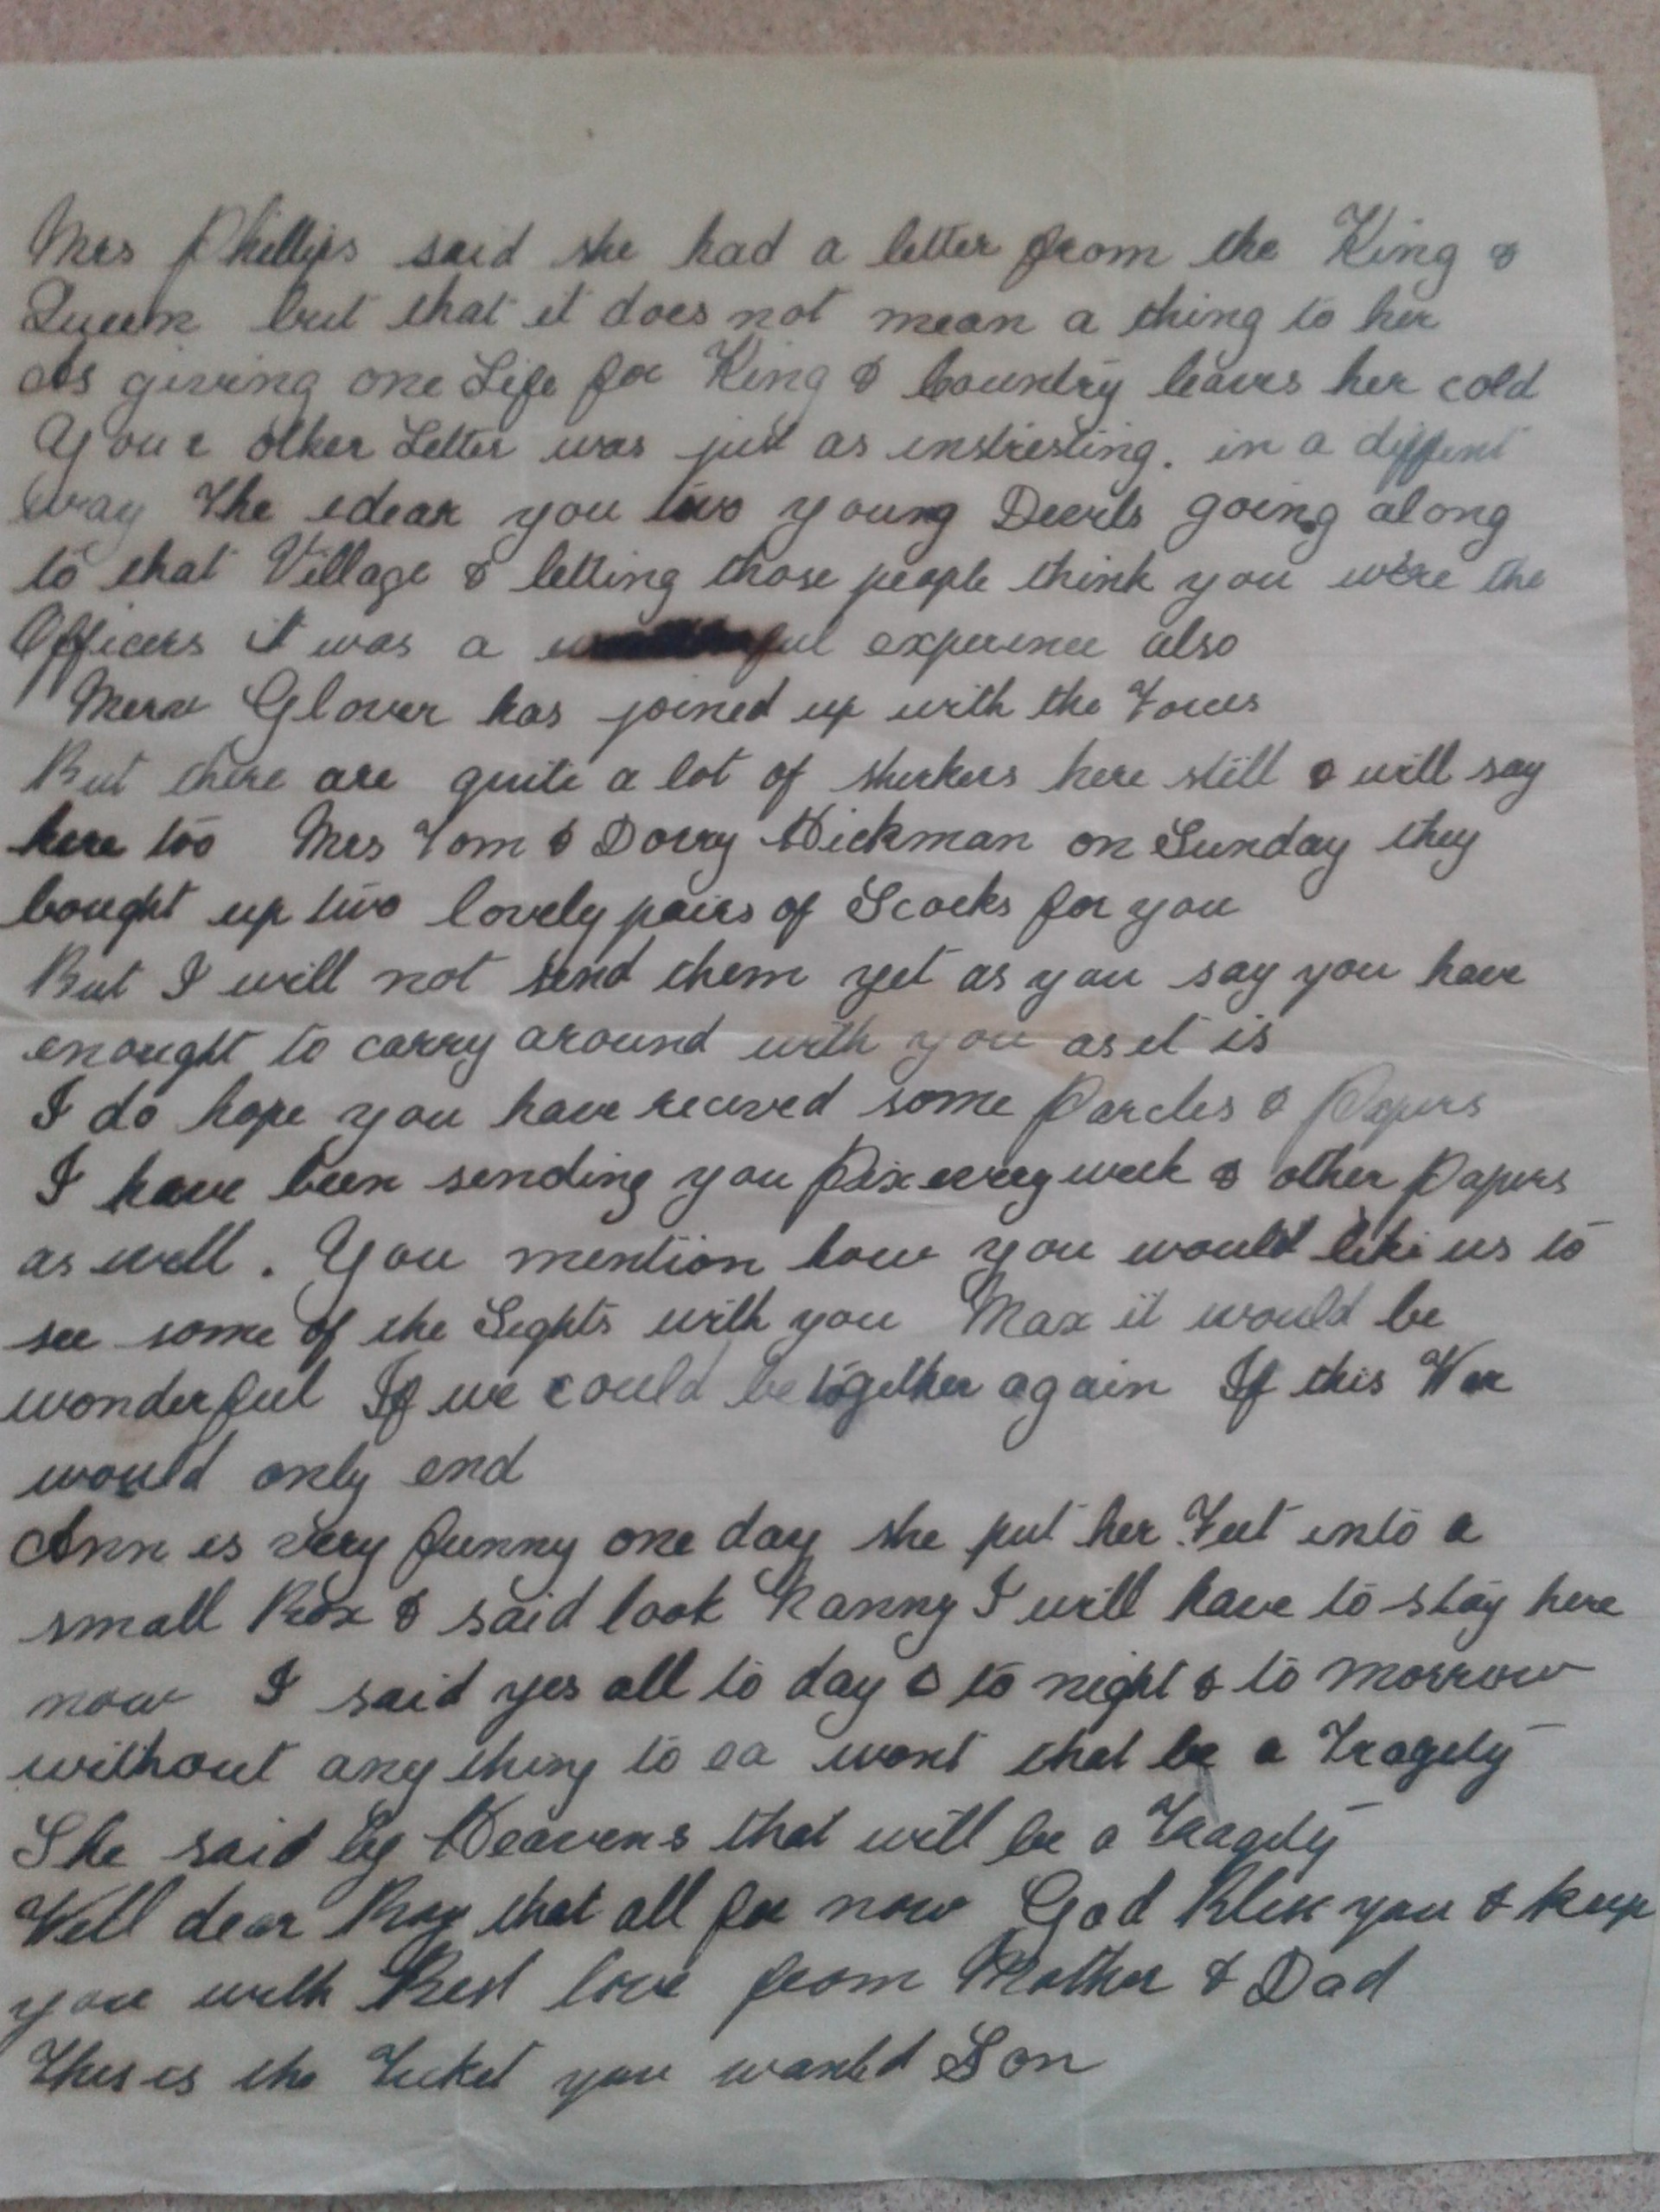 Mrs Phillips said she had a letter from the King &
Queen but that it does not mean a thing to her
As giving one Life for King & Country leaves her cold
Your other Letter was just as instresting. in a diffent
way The idear you two young Deevls going along
to that Village & letting those people think you were the
Officers it was a experience also
Merv Glover has joined up with the Forces
But there are quite a lot of shirkers here still & will say
here too Mrs Tom & Dorry Hickman on Sunday they
bought up two lovely pairs of Scocks for you
But I will not send them yet as you say you have
enought to carry around with you as it is
I do hope you have recived some Parcles & Papers
I have been sending you Pix every week & other Papers
as well. You mention how you would like us to
see some of the Sights with you Max it would be
wonderful If we could be together again If this War
would only end
Ann is very funny one day she put her Feet into a
small Box & said look Nanny I will have to stay here
now I said yes all to day & to night & to morrow
without any thing to ea wont that be a Tragety
She said by Heavens that will be a Tragety
Well dear Boy that all for now God Bless you & keep
you with Best love from Mother & Dad
This is the Ticket you wanted Son